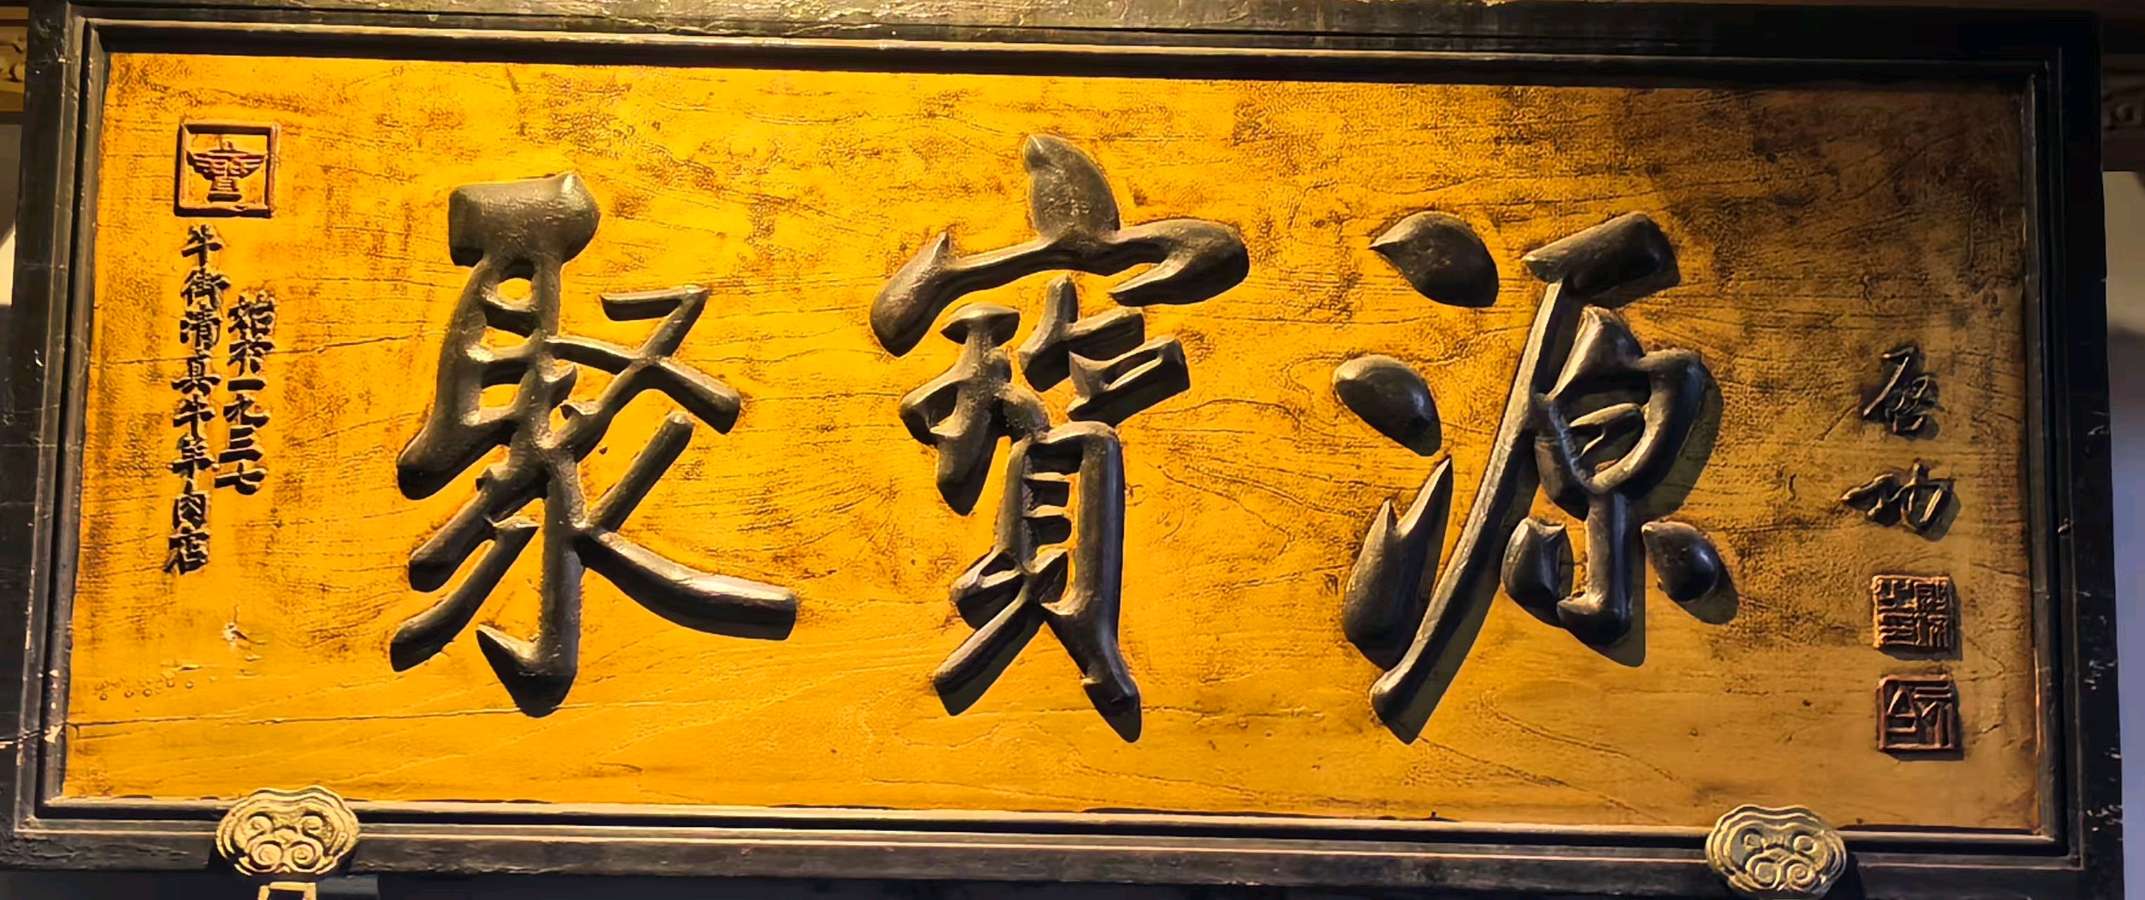 牛街清真牛羊肉店
始於一九三七
聚寶源
启功